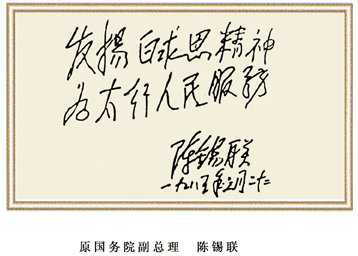 发揚白求恩精神
为太行人民服务
陈锡联
一九八五年三月二十二
原国务院副总理 陈锡联